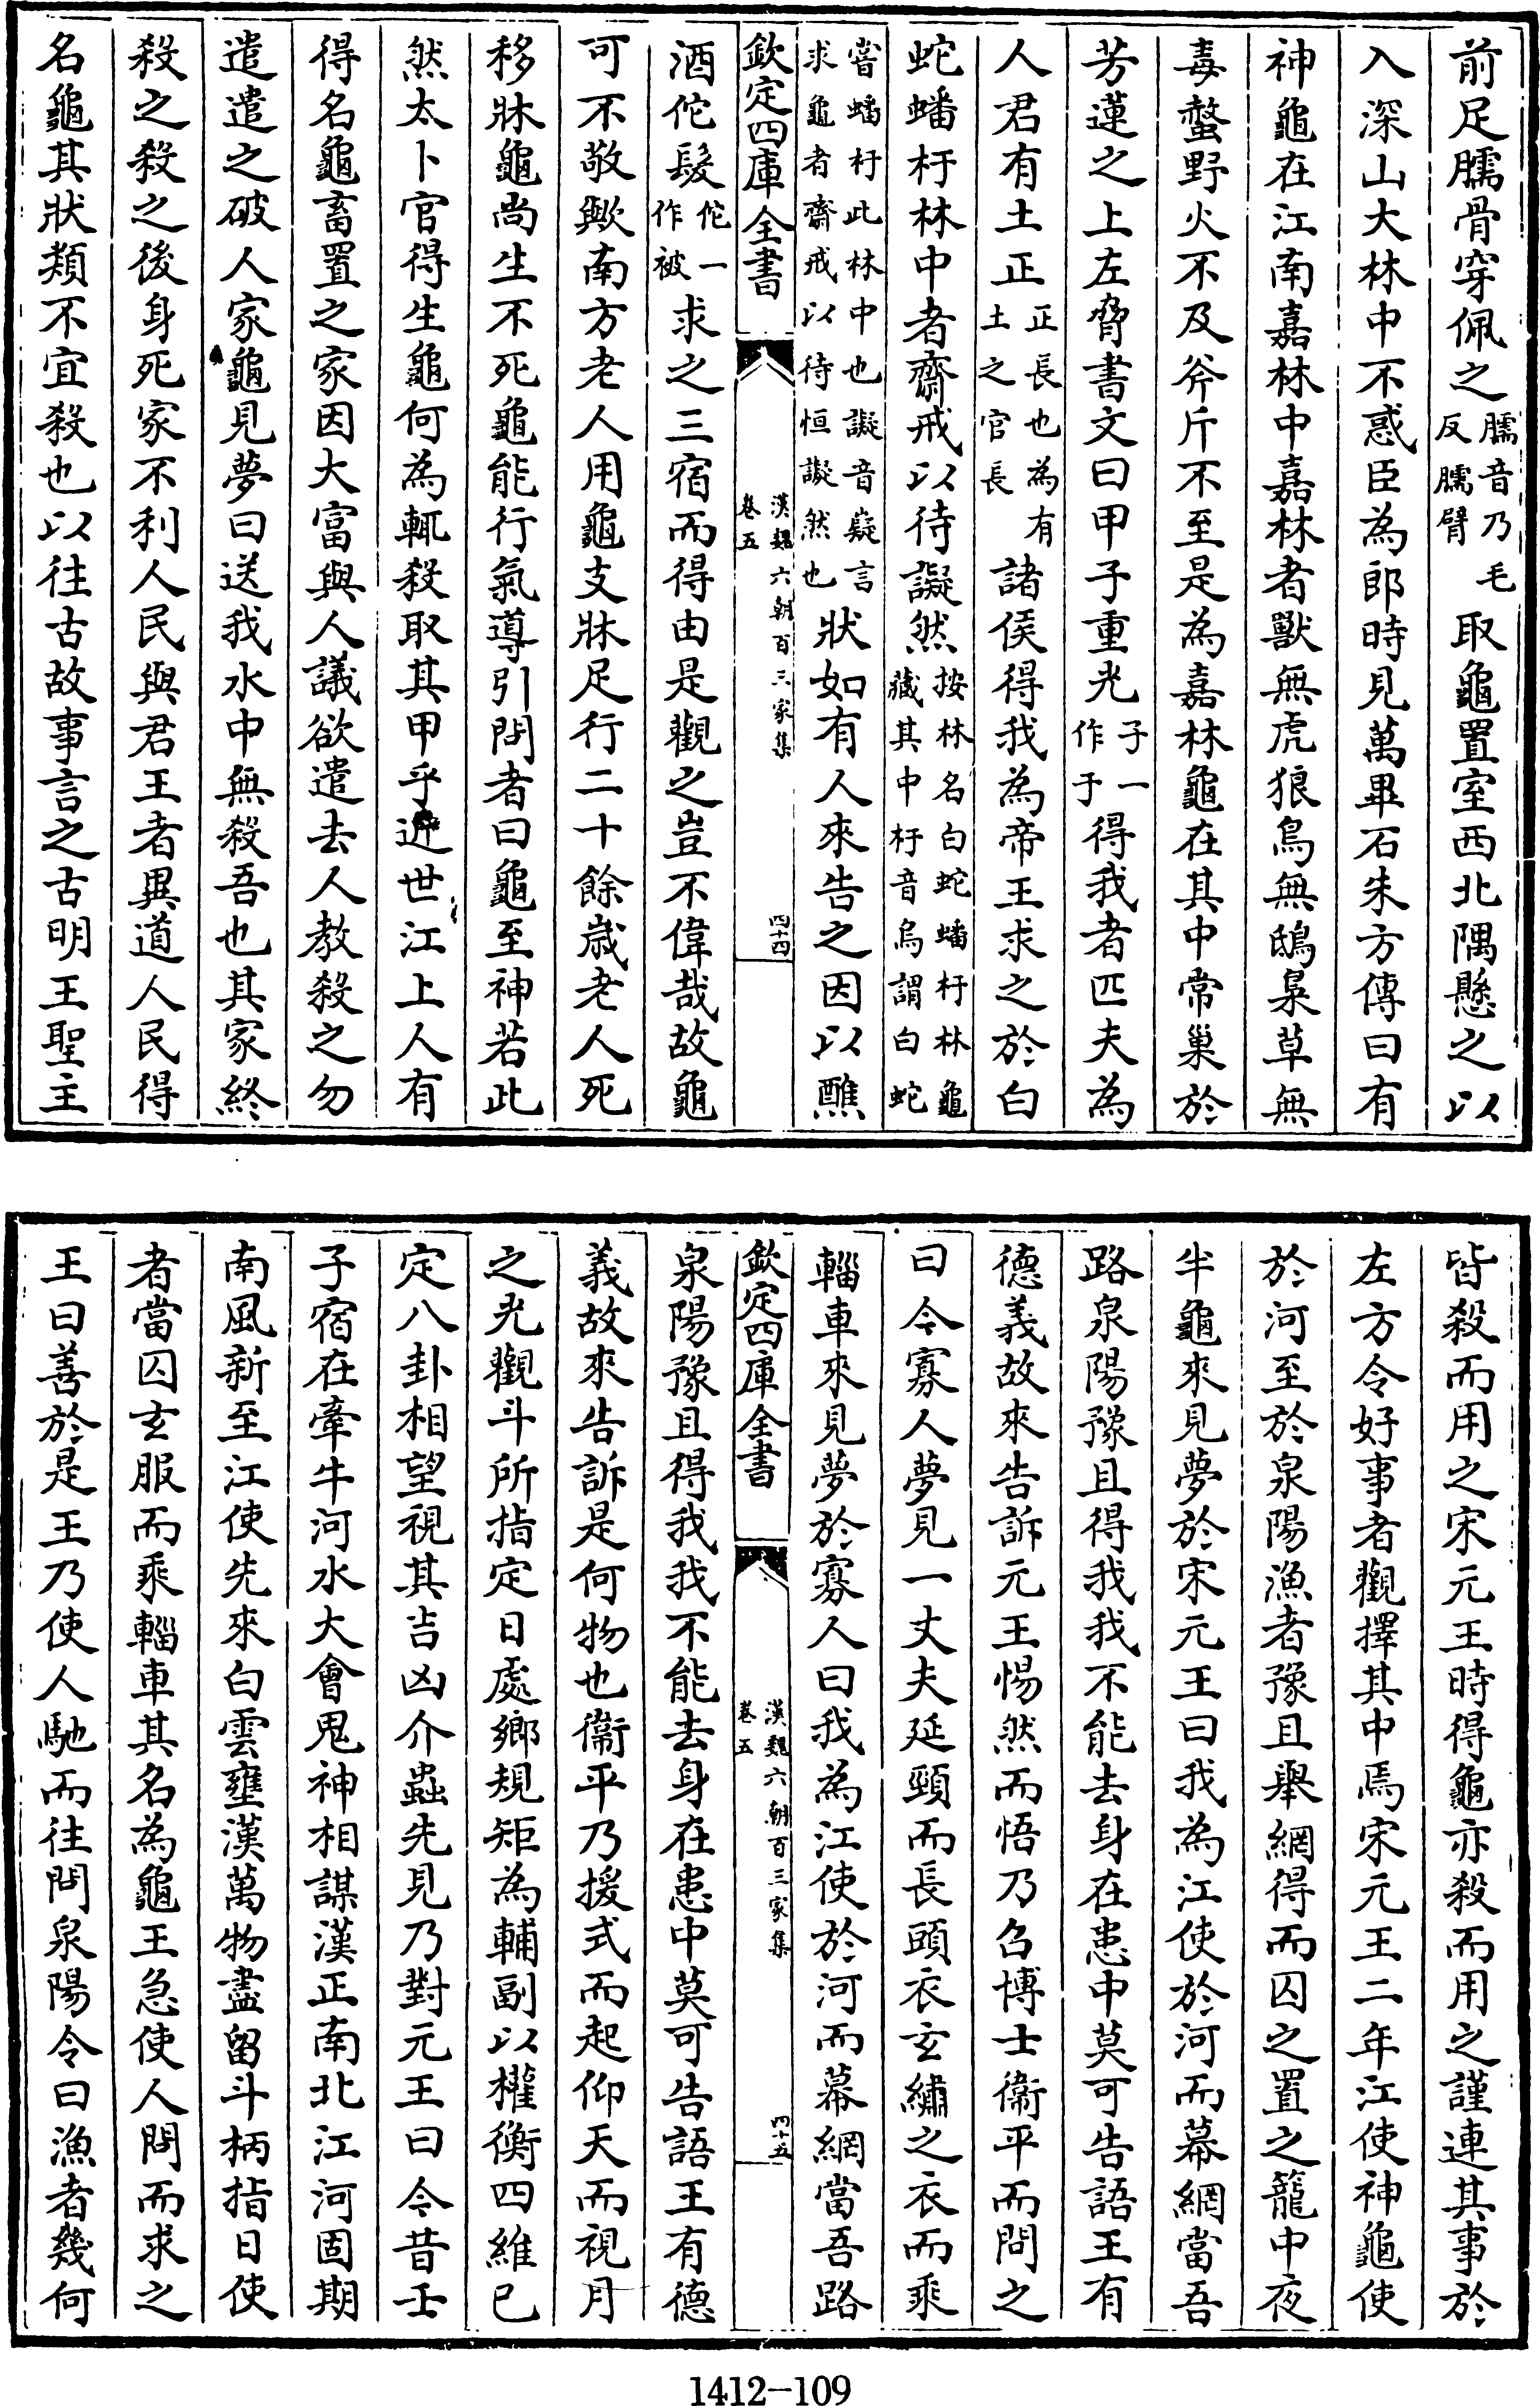 前足臑骨穿佩之臑音乃毛反臑臂取龜置室西北隅懸之以
入深山大林中不惑臣為郎時見萬畢石朱方傳曰有
神龜在江南嘉林中嘉林者獸無虎狼鳥無鴟梟草無
毒螫野火不及斧斤不至是為嘉林龜在其中常巢於
芳蓮之上左脅書文曰甲子重光子一作于得我者匹夫為
人君有土正正長也為有土之官長諸侯得我為帝王求之於白
蛇蟠杅林中者齋戒以待譺然按林名白蛇蟠杅林龜藏其中杅音烏謂白蛇
嘗蟠杅此林中也譺音嶷言求龜者齋戒以待恒譺然也狀如有人來告之因以醮
欽定四庫全書
漢魏六朝百三家集
卷五
四十四
酒佗髮佗一作被求之三宿而得由是觀之豈不偉哉故龜
可不敬歟南方老人用龜支牀足行二十餘歲老人死
移牀龜尚生不死龜能行氣導引問者曰龜至神若此
然太卜官得生龜何為輒殺取其甲乎近世江上人有
得名龜畜置之家因大富與人議欲遣去人教殺之勿
遣遣之破人家龜見夢曰送我水中無殺吾也其家終
殺之殺之後身死家不利人民與君王者異道人民得
名龜其狀類不宜殺也以往古故事言之古明王聖主
皆殺而用之宋元王時得龜亦殺而用之謹連其事於
左方令好事者觀擇其中焉宋元王二年江使神龜使
於河至於泉陽漁者豫且舉網得而囚之置之籠中夜
半龜來見夢於宋元王曰我為江使於河而幕網當吾
路泉陽豫且得我我不能去身在患中莫可告語王有
德義故來告訴元王惕然而悟乃召博士衞平而問之
曰今寡人夢見一丈夫延頸而長頭衣玄繡之衣而乘
輜車來見夢於寡人曰我為江使於河而幕網當吾路
欽定四庫全書
漢魏六朝百三家集
卷五
四十五
泉陽豫且得我我不能去身在患中莫可告語王有德
義故來告訴是何物也衞平乃援式而起仰天而視月
之光觀斗所指定日處鄉規矩為輔副以權衡四維已
定八卦相望視其吉凶介蟲先見乃對元王曰今昔壬
子宿在牽牛河水大會鬼神相謀漢正南北江河固期
南風新至江使先來白雲壅漢萬物盡留斗柄指日使
者當囚玄服而乘輜車其名為龜王急使人問而求之
王曰善於是王乃使人馳而往問泉陽令曰漁者幾何
1412-109